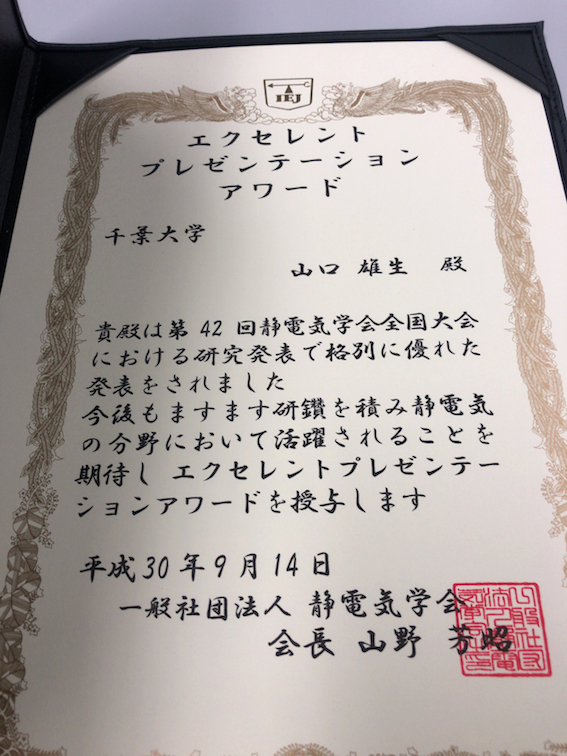 IEJ
エクセレント
プレゼンテーション
アワード
千葉大学
山口 雄生 殿
貴殿は第 42 回静電気学会全国大会
における研究発表で格別に優れた
発表をされました
今後もますます研鑽を積み静電気
の分野において活躍されることを
期待し エクセレントプレゼンテー
ションアワードを授与します
平成30年9月14日
一般社団法人 静電気学会
会長 山野 芳昭